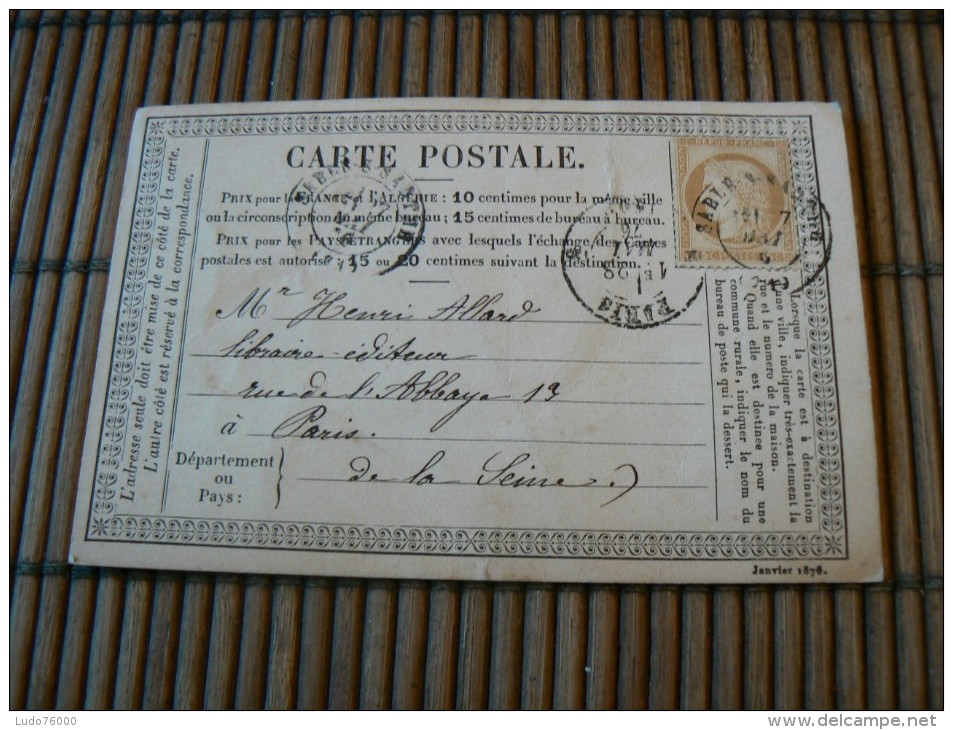 CARTE POSTALE.
PRIX pour la FRANCE et l'ALGERIE : 10 centimes pour la même ville
ou la circonscription du même bureau ; 15 centimes de bureau à bureau.
PRIX pour les PAYS ETRANGERS avec lesquels l'échange des Cartes
postales est autorisé : 15 ou 20 centimes suivant la destination.
Mr Henri Allard
libraire-éditeur
rue de l'Abbaye 13
à Paris.
Département
ou
Pays :
de la Seine.)
L'adresse seule doit être mise de ce côté de la carte.
L'autre côté est réservé à la correspondance.
Lorsque la carte est à destination
d'une ville, indiquer très-exactement la
rue et le numero de la maison.
Quand elle est destinée pour une
commune rurale, indiquer le nom du
bureau de poste qui la dessert.
REPUB FRANC
PARIS
Janvier 1876.
Ludo76000
www.delcampe.net